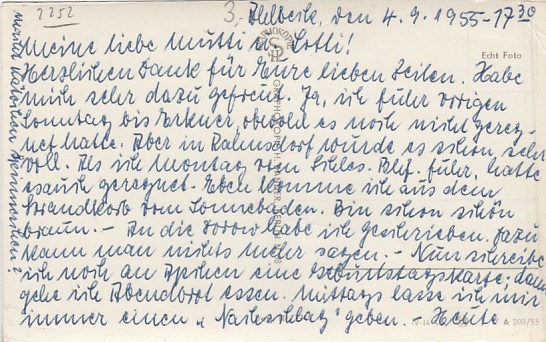 2252
3, Ahlbeck, den 4.9.1955 - 17 30
Meine liebe Mutti u. Lotti!
Echt Foto
Herzlichen Dank für Eure lieben Zeilen. Habe
mich sehr dazu gefreut. Ja, ich fuhr vorigen
Sonntag bis Erkner, obwohl es noch nicht gereg-
net hatte. Aber in Rahnsdorf wurde es schon sehr
voll. Als ich Montag vom Schles. Bhf. fuhr, hatte
es auch geregnet. Eben komme ich aus dem
Strandkorb vom Sonnebaden. Bin schon schön
braun. - An die habe ich geschrieben. Dazu
kann man nichts mehr sagen. - Nun schreibe
ich noch an eine Geburtstagskarte, dann
gehe ich Abendbrot essen. Mittags lasse ich mir
immer einen „Nachschlag" geben. - Heute
A 200/55